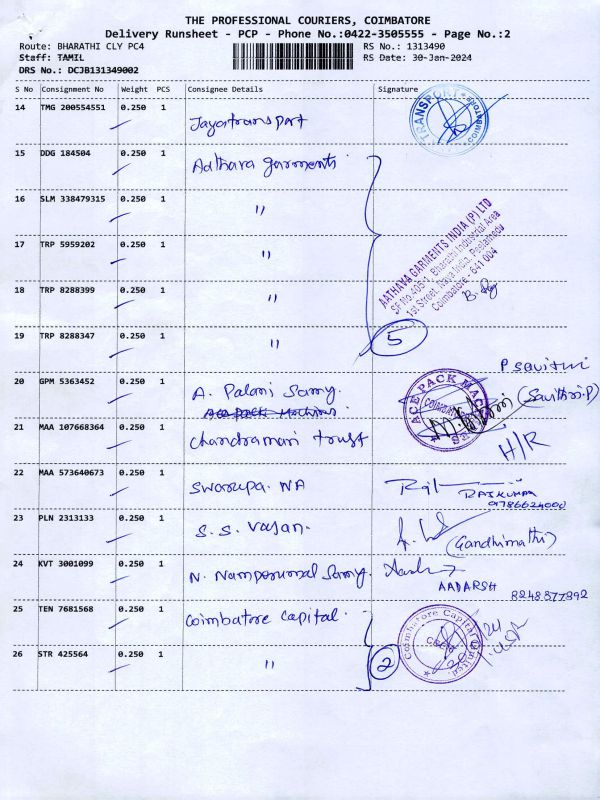 THE PROFESSIONAL COURIERS, COIMBATORE
Delivery Runsheet - PCP - Phone No.:0422-3505555 - Page No.:2
Route: BHARATHI CLY PC4
RS No.: 1313490
Staff: TAMIL
RS Date: 30-Jan-2024
DRS No.: DCJB131349002
S No Consignment No Weight PCS Consignee Details Signature
14 TMG 200554551 0.250 1 Jayatransport
TRANSPORT COIMBATORE
15 DDG 184504 0.250 1 Aathava garments
16 SLM 338479315 0.250 1 "
17 TRP 5959202 0.250 1 "
18 TRP 8288399 0.250 1 "
19 TRP 8288347 0.250 1 "
AATHAVA GARMENTS INDIA (P) LTD
SF No.405/1, Bharathi Industrial Area
1st Street, Nava India, Peelamedu
Coimbatore - 641 004
5
20 GPM 5363452 0.250 1 A. Palani Samy.
Ace Pack Machines.
ACE PACK MAC
P Savithri
(Savithri.P)
21 MAA 107668364 0.250 1 Chandramari trust
H/R
22 MAA 573640673 0.250 1 Swarupa. NA
RAJKUMAR
9786624000
23 PLN 2313133 0.250 1 S.S. Vasan.
(Gandhimathi)
24 KVT 3001099 0.250 1 N. Namperumal Samy.
AADARSH
8248877392
25 TEN 7681568 0.250 1 Coimbatore capital.
26 STR 425564 0.250 1 "
2
Coimbatore Capital Limited